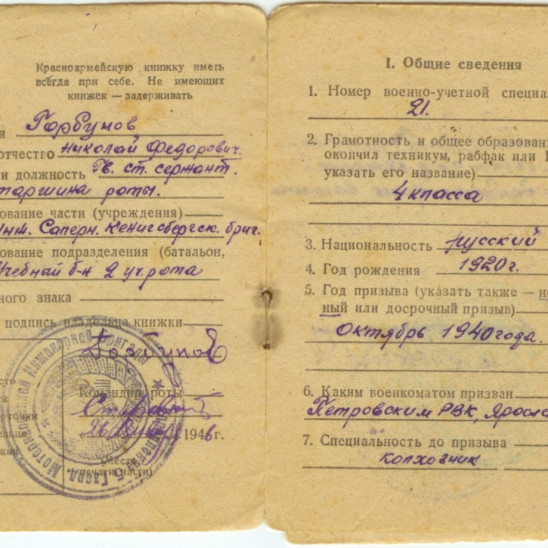 Красноармейскую книжку иметь
всегда при себе. Не имеющих
книжек — задерживать
Горбунов
отчество Николай Федорович.
и должность Гв. ст. сержант.
старшина роты.
ование части (учреждения)
Инж. Саперн. Кенигсбергск. бриг.
ование подразделения (батальон,
Учебный б-н 2 уч. рота
ного знака
подпись владельца книжки
Командир роты
1946 г.
I. Общие сведения
1. Номер военно-учетной специал
21.
2. Грамотность и общее образован
окончил техникум, рабфак или
указать его название)
4 класса
3. Национальность русский
4. Год рождения 1920 г.
5. Год призыва (указать также — но
ный или досрочный призыв)
октябрь 1940 года.
6. Каким военкоматом призван
Петровским РВК, Яросла
7. Специальность до призыва
колхозник